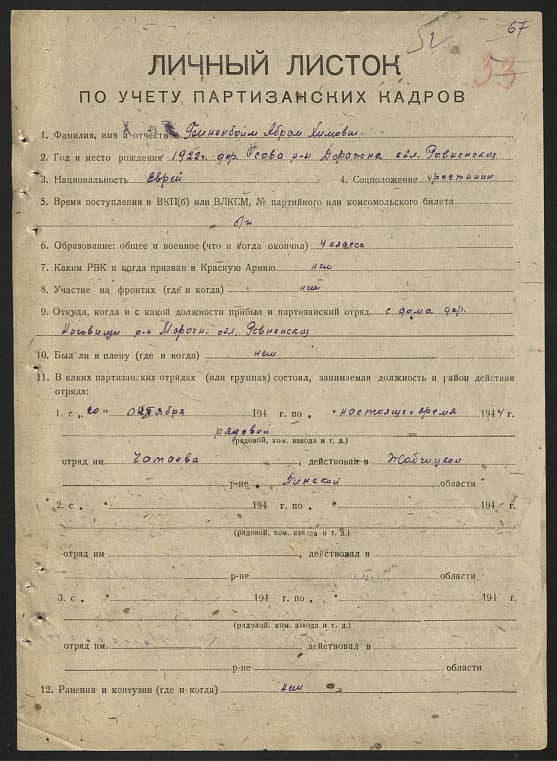 52
67
53
ЛИЧНЫЙ ЛИСТОК
ПО УЧЕТУ ПАРТИЗАНСКИХ КАДРОВ
1. Фамилия, имя и отчество Абрам Химович.
2. Год и место рождения 1922г. дер. Осова р-н Деражна обл. Ровненская
3. Национальность Еврей 4. Соцположение крестьянин
5. Время поступления в ВКП(б) или ВЛКСМ, № партийного или комсомольского билета
б/п
6. Образование: общее и военное (что и когда окончил) 4 класса
7. Каким РВК и когда призван в Красную Армию нет
8. Участие на фронтах (где и когда) нет
9. Откуда, когда и с какой должности прибыл и партизанский отряд с дома дер.
р-н Морочн. обл. Ровненская
10. Был ли в плену (где и когда) нет
11. В каких партизанских отрядах (или группах) состоял, занимаемая должность и район действия
отряда:
1. с „20" октября 194 г. по " настоящее время 1944 г.
рядовой
(рядовой, ком. взвода и т. д.)
отряд им. Чапаева, действовал в Жабчицком
р-не Пинской области
2. с „ " 194 г. по „ " 194 г.
(рядовой, ком. взвода и т. д.)
отряд им , действовал в
р-не области
3. с „ " 194 г. по „ " 194 г.
(рядовой, ком. взвода и т. д.)
отряд им. действовал в
р-не области
12. Ранения и контузии (где и когда) нет